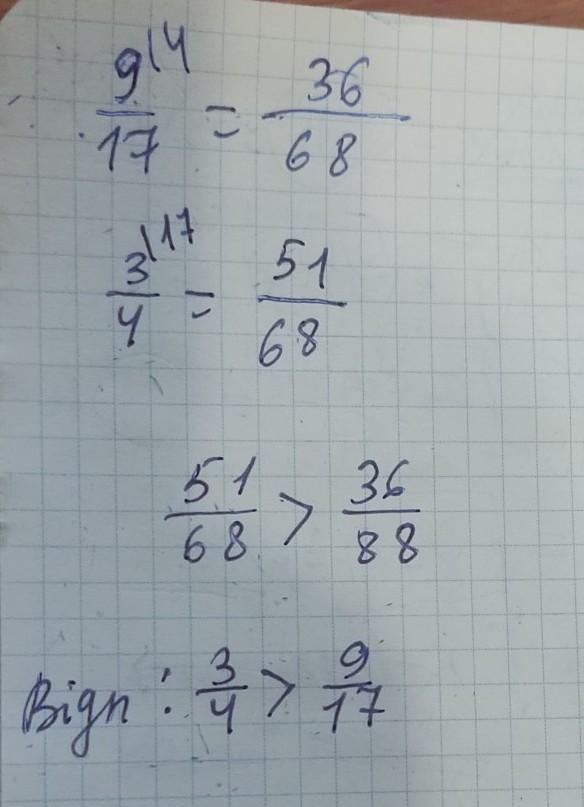 9/17 |4 = 36/68
3/4 |17 = 51/68
51/68 > 36/88
Відп: 3/4 > 9/17